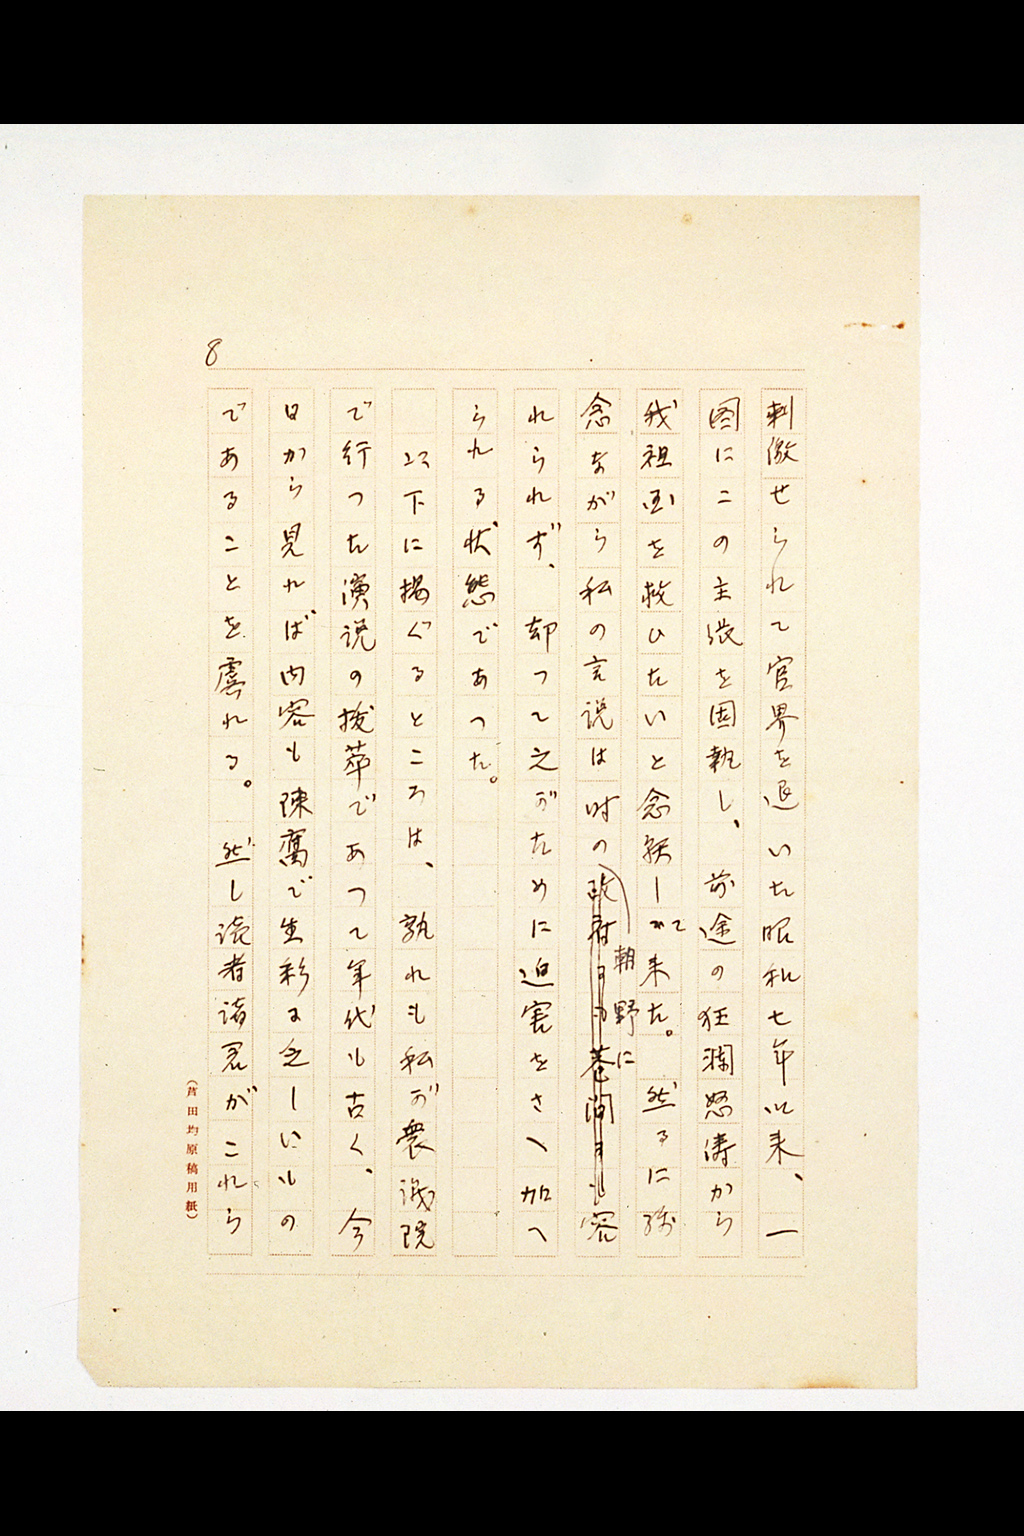 8
刺激せられて官界を退いた昭和七年以来、一
図にこの主張を固執し、前途の狂瀾怒涛から
我祖国を救ひたいと念願して来た。然るに残
念ながら私の言説は時の政府にも巷間にも容
朝野に
れられず、却つて之がために迫害をさへ加へ
られる状態であつた。
以下に掲ぐるところは、孰れも私が衆議院
で行つた演説の抜萃であつて年代も古く、今
日から見れば内容も陳腐で生彩に乏しいもの
であることを虞れる。然し読者諸君がこれら
（芦田均原稿用紙）